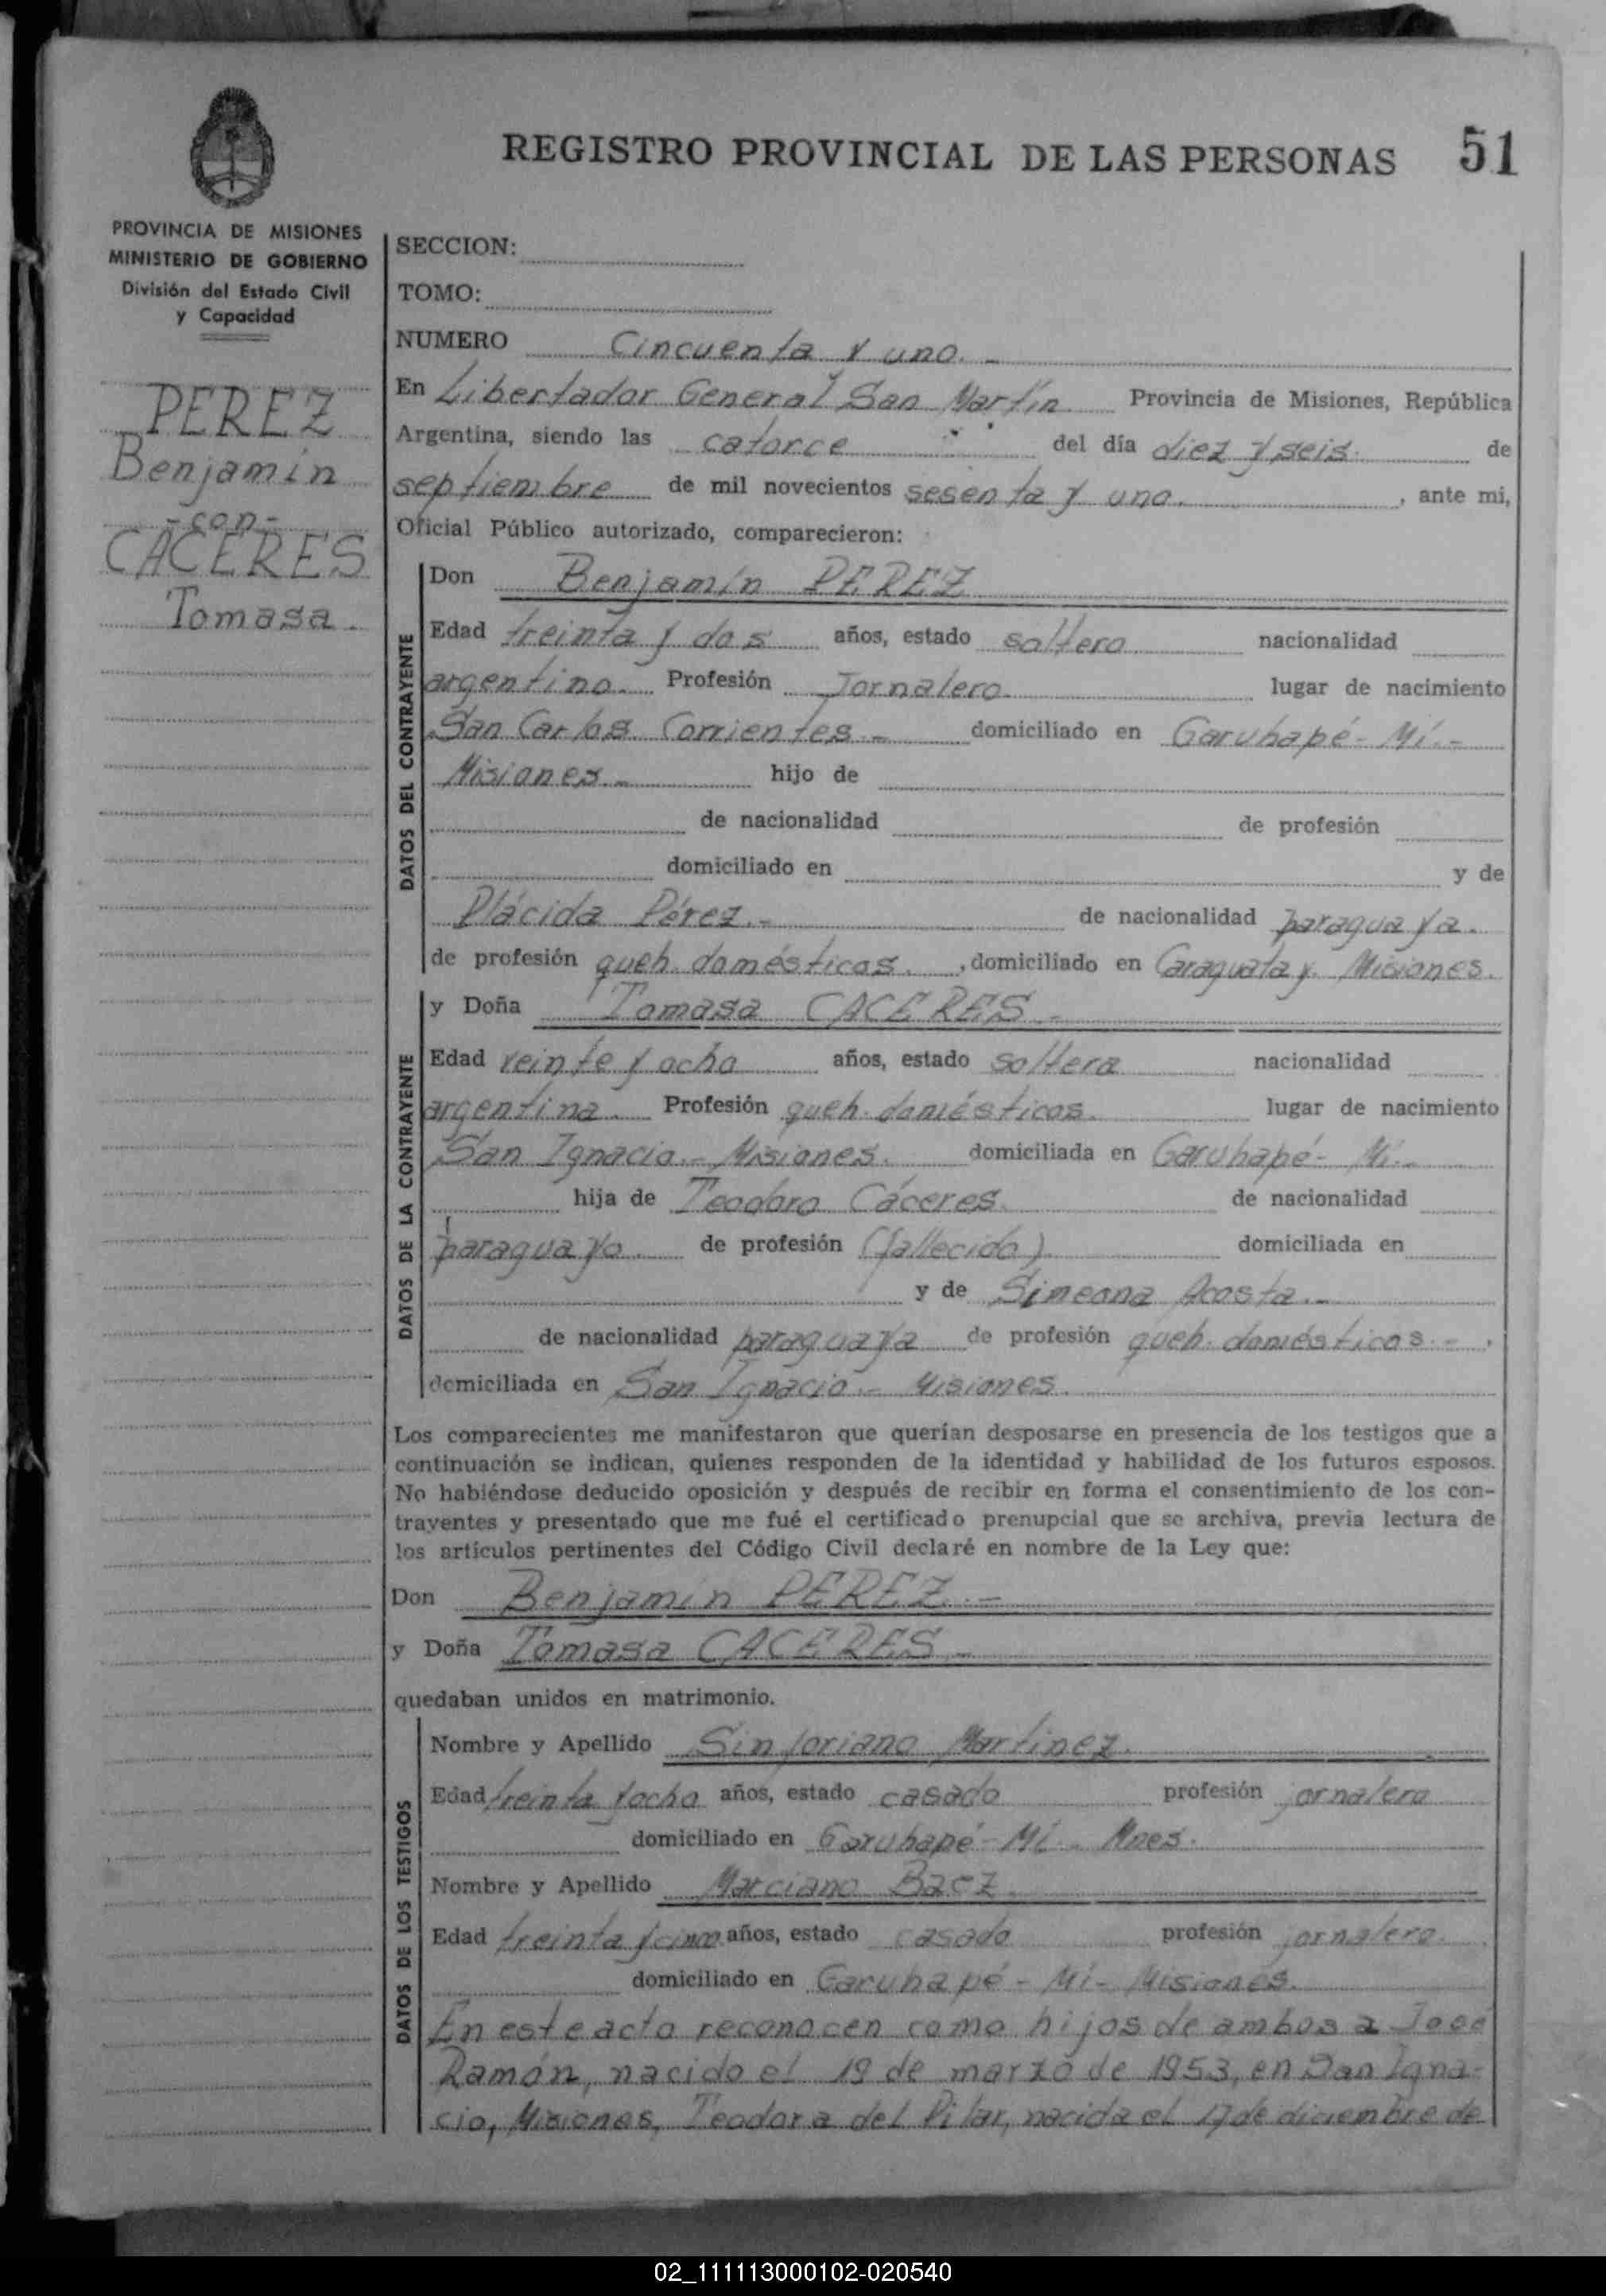 REGISTRO PROVINCIAL DE LAS PERSONAS 51
PROVINCIA DE MISIONES
MINISTERIO DE GOBIERNO
División del Estado Civil
y Capacidad
PEREZ
Benjamín
-con-
CACERES
Tomasa.
SECCION:
TOMO:
NUMERO Cincuenta y uno.-
En Libertador General San Martín Provincia de Misiones, República
Argentina, siendo las catorce del día diez y seis de
septiembre de mil novecientos sesenta y uno. , ante mi,
Oficial Público autorizado, comparecieron:
DATOS DEL CONTRAYENTE
Don Benjamín PEREZ
Edad treinta y dos años, estado soltero nacionalidad
argentino. Profesión Jornalero. lugar de nacimiento
San Carlos Corrientes.- domiciliado en Garuhapé-Mí.-
Misiones.- hijo de
de nacionalidad de profesión
domiciliado en y de
Plácida Pérez.- de nacionalidad paraguaya.
de profesión queh. domésticos. , domiciliado en Caraguatay. Misiones.
DATOS DE LA CONTRAYENTE
y Doña Tomasa CACERES-
Edad veinte y ocho años, estado soltera nacionalidad
argentina. Profesión queh. domésticos. lugar de nacimiento
San Ignacio.- Misiones. domiciliada en Garuhapé- Mí.-
hija de Teodoro Cáceres. de nacionalidad
paraguayo. de profesión (fallecido) domiciliada en
y de Simeona Acosta.-
de nacionalidad paraguaya de profesión queh. domésticos.- ,
domiciliada en San Ignacio.- Misiones.
Los comparecientes me manifestaron que querían desposarse en presencia de los testigos que a
continuación se indican, quienes responden de la identidad y habilidad de los futuros esposos.
No habiéndose deducido oposición y después de recibir en forma el consentimiento de los con-
trayentes y presentado que me fué el certificado prenupcial que se archiva, previa lectura de
los artículos pertinentes del Código Civil declaré en nombre de la Ley que:
Don Benjamín PEREZ.-
y Doña Tomasa CACERES-
quedaban unidos en matrimonio.
DATOS DE LOS TESTIGOS
Nombre y Apellido Sinforiano Martinez.
Edad treinta y ocho años, estado casado profesión jornalero
domiciliado en Garuhapé-Mí. Mnes.
Nombre y Apellido Marciano Baez
Edad treinta y cinco años, estado casado profesión jornalero.
domiciliado en Garuhapé-Mí- Misiones.
En este acto reconocen como hijos de ambos a José
Ramón, nacido el 19 de marzo de 1953, en San Igna-
cio, Misiones, Teodora del Pilar, nacida el 17 de diciembre de
02_111113000102-020540